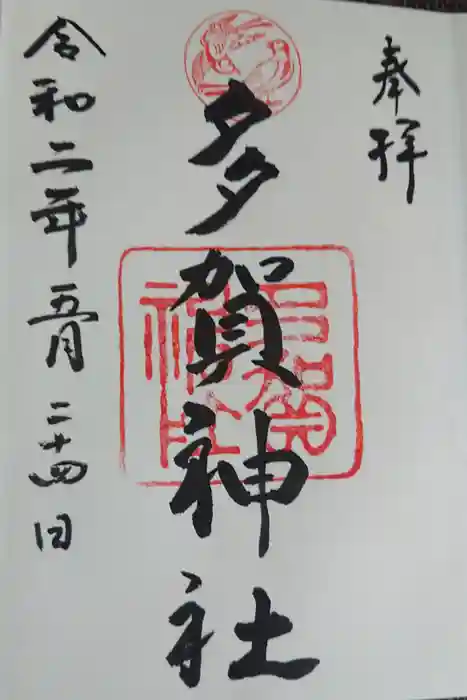 奉拝
多賀神社
令和二年五月二十四日